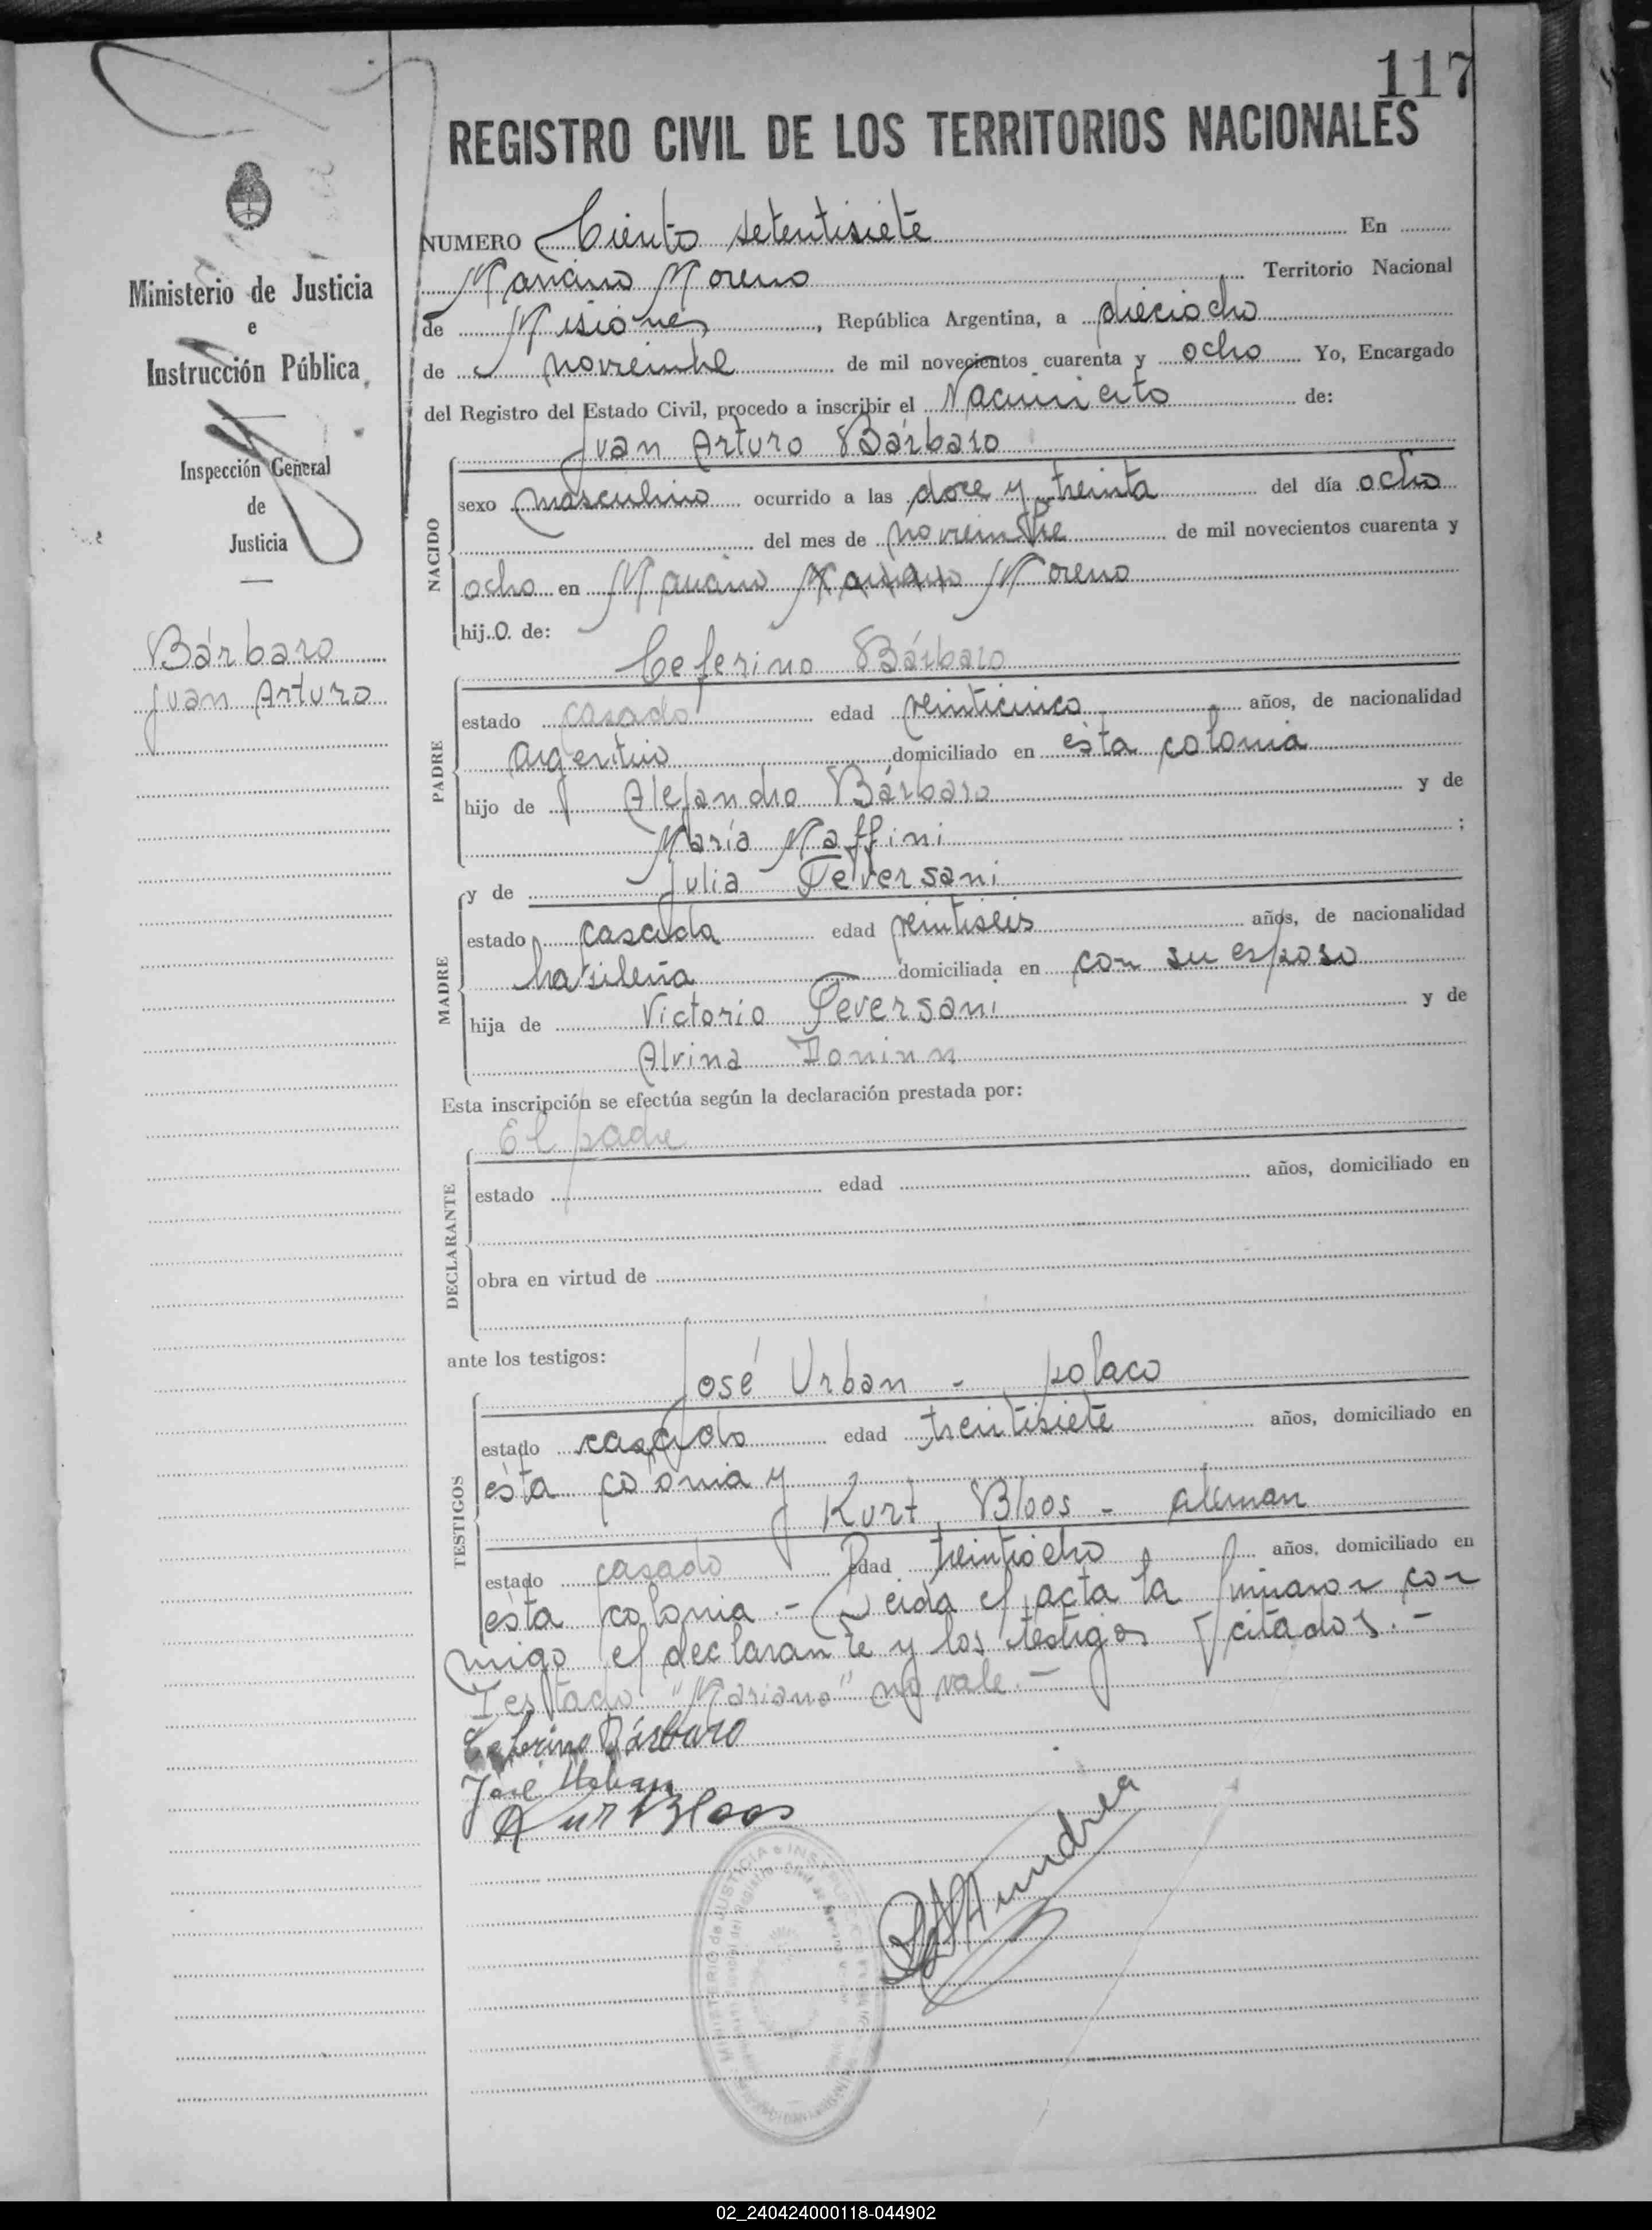 117
REGISTRO CIVIL DE LOS TERRITORIOS NACIONALES
Ministerio de Justicia
e
Instrucción Pública
Inspección General
de
Justicia
Bárbaro
Juan Arturo
NUMERO Ciento setentisiete En
Mariano Moreno Territorio Nacional
de Misiones, República Argentina, a dieciocho
de noviembre de mil novecientos cuarenta y ocho Yo, Encargado
del Registro del Estado Civil, procedo a inscribir el Nacimiento de:
Juan Arturo Bárbaro
NACIDO
sexo masculino ocurrido a las doce y treinta del día ocho
del mes de noviembre de mil novecientos cuarenta y
ocho en Mariano Mariano Moreno
hijo de:
Ceferino Bárbaro
PADRE
estado casado edad veinticinco años, de nacionalidad
argentino domiciliado en esta colonia
hijo de Alejandro Bárbaro y de
María Maffini ;
y de Julia Peversani
MADRE
estado casada edad veintiseis años, de nacionalidad
brasileña domiciliada en con su esposo
hija de Victorio Peversani y de
Alvina
Esta inscripción se efectúa según la declaración prestada por:
El padre
DECLARANTE
estado edad años, domiciliado en
obra en virtud de
ante los testigos:
José Urban - polaco
TESTIGOS
estado casado edad treintisiete años, domiciliado en
esta colonia y
Kurt Bloos - aleman
estado casado edad treintiocho años, domiciliado en
esta colonia.- Leida el acta la firmaron con
migo el declarante y los testigos citados.-
Testado "Mariano" no vale.-
Ceferino Bárbaro
José Urban
Kurt Bloos
MINISTERIO de JUSTICIA e INSTRUCCION
02_240424000118-044902